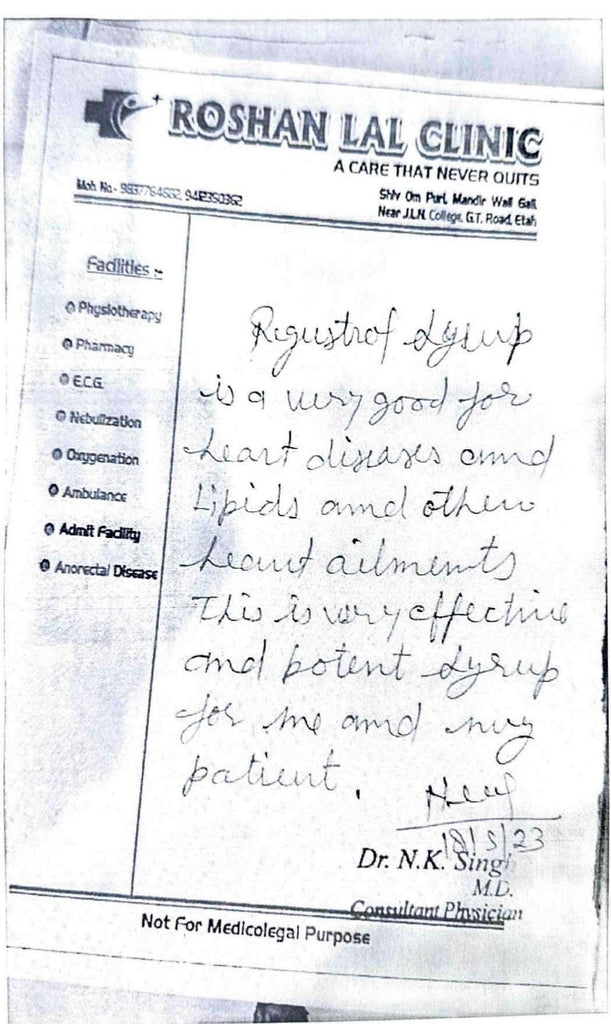 ROSHAN LAL CLINIC
A CARE THAT NEVER QUITS
Mob. No.- 9412350362
Shiv Om Puri, Mandir Wali Gali,
Near J.L.N. College, G.T. Road, Etah
Facilities :-
Physiotherapy
Pharmacy
E.C.G.
Nebulization
Oxygenation
Ambulance
Admit Facility
Anorectal Disease
syrup
is a very good for
heart diseases and
Lipids and other
heart ailments
This is very effective
and potent syrup
for me and my
patient.
18/5/23
Dr. N.K. Singh
M.D.
Consultant Physician
Not For Medicolegal Purpose